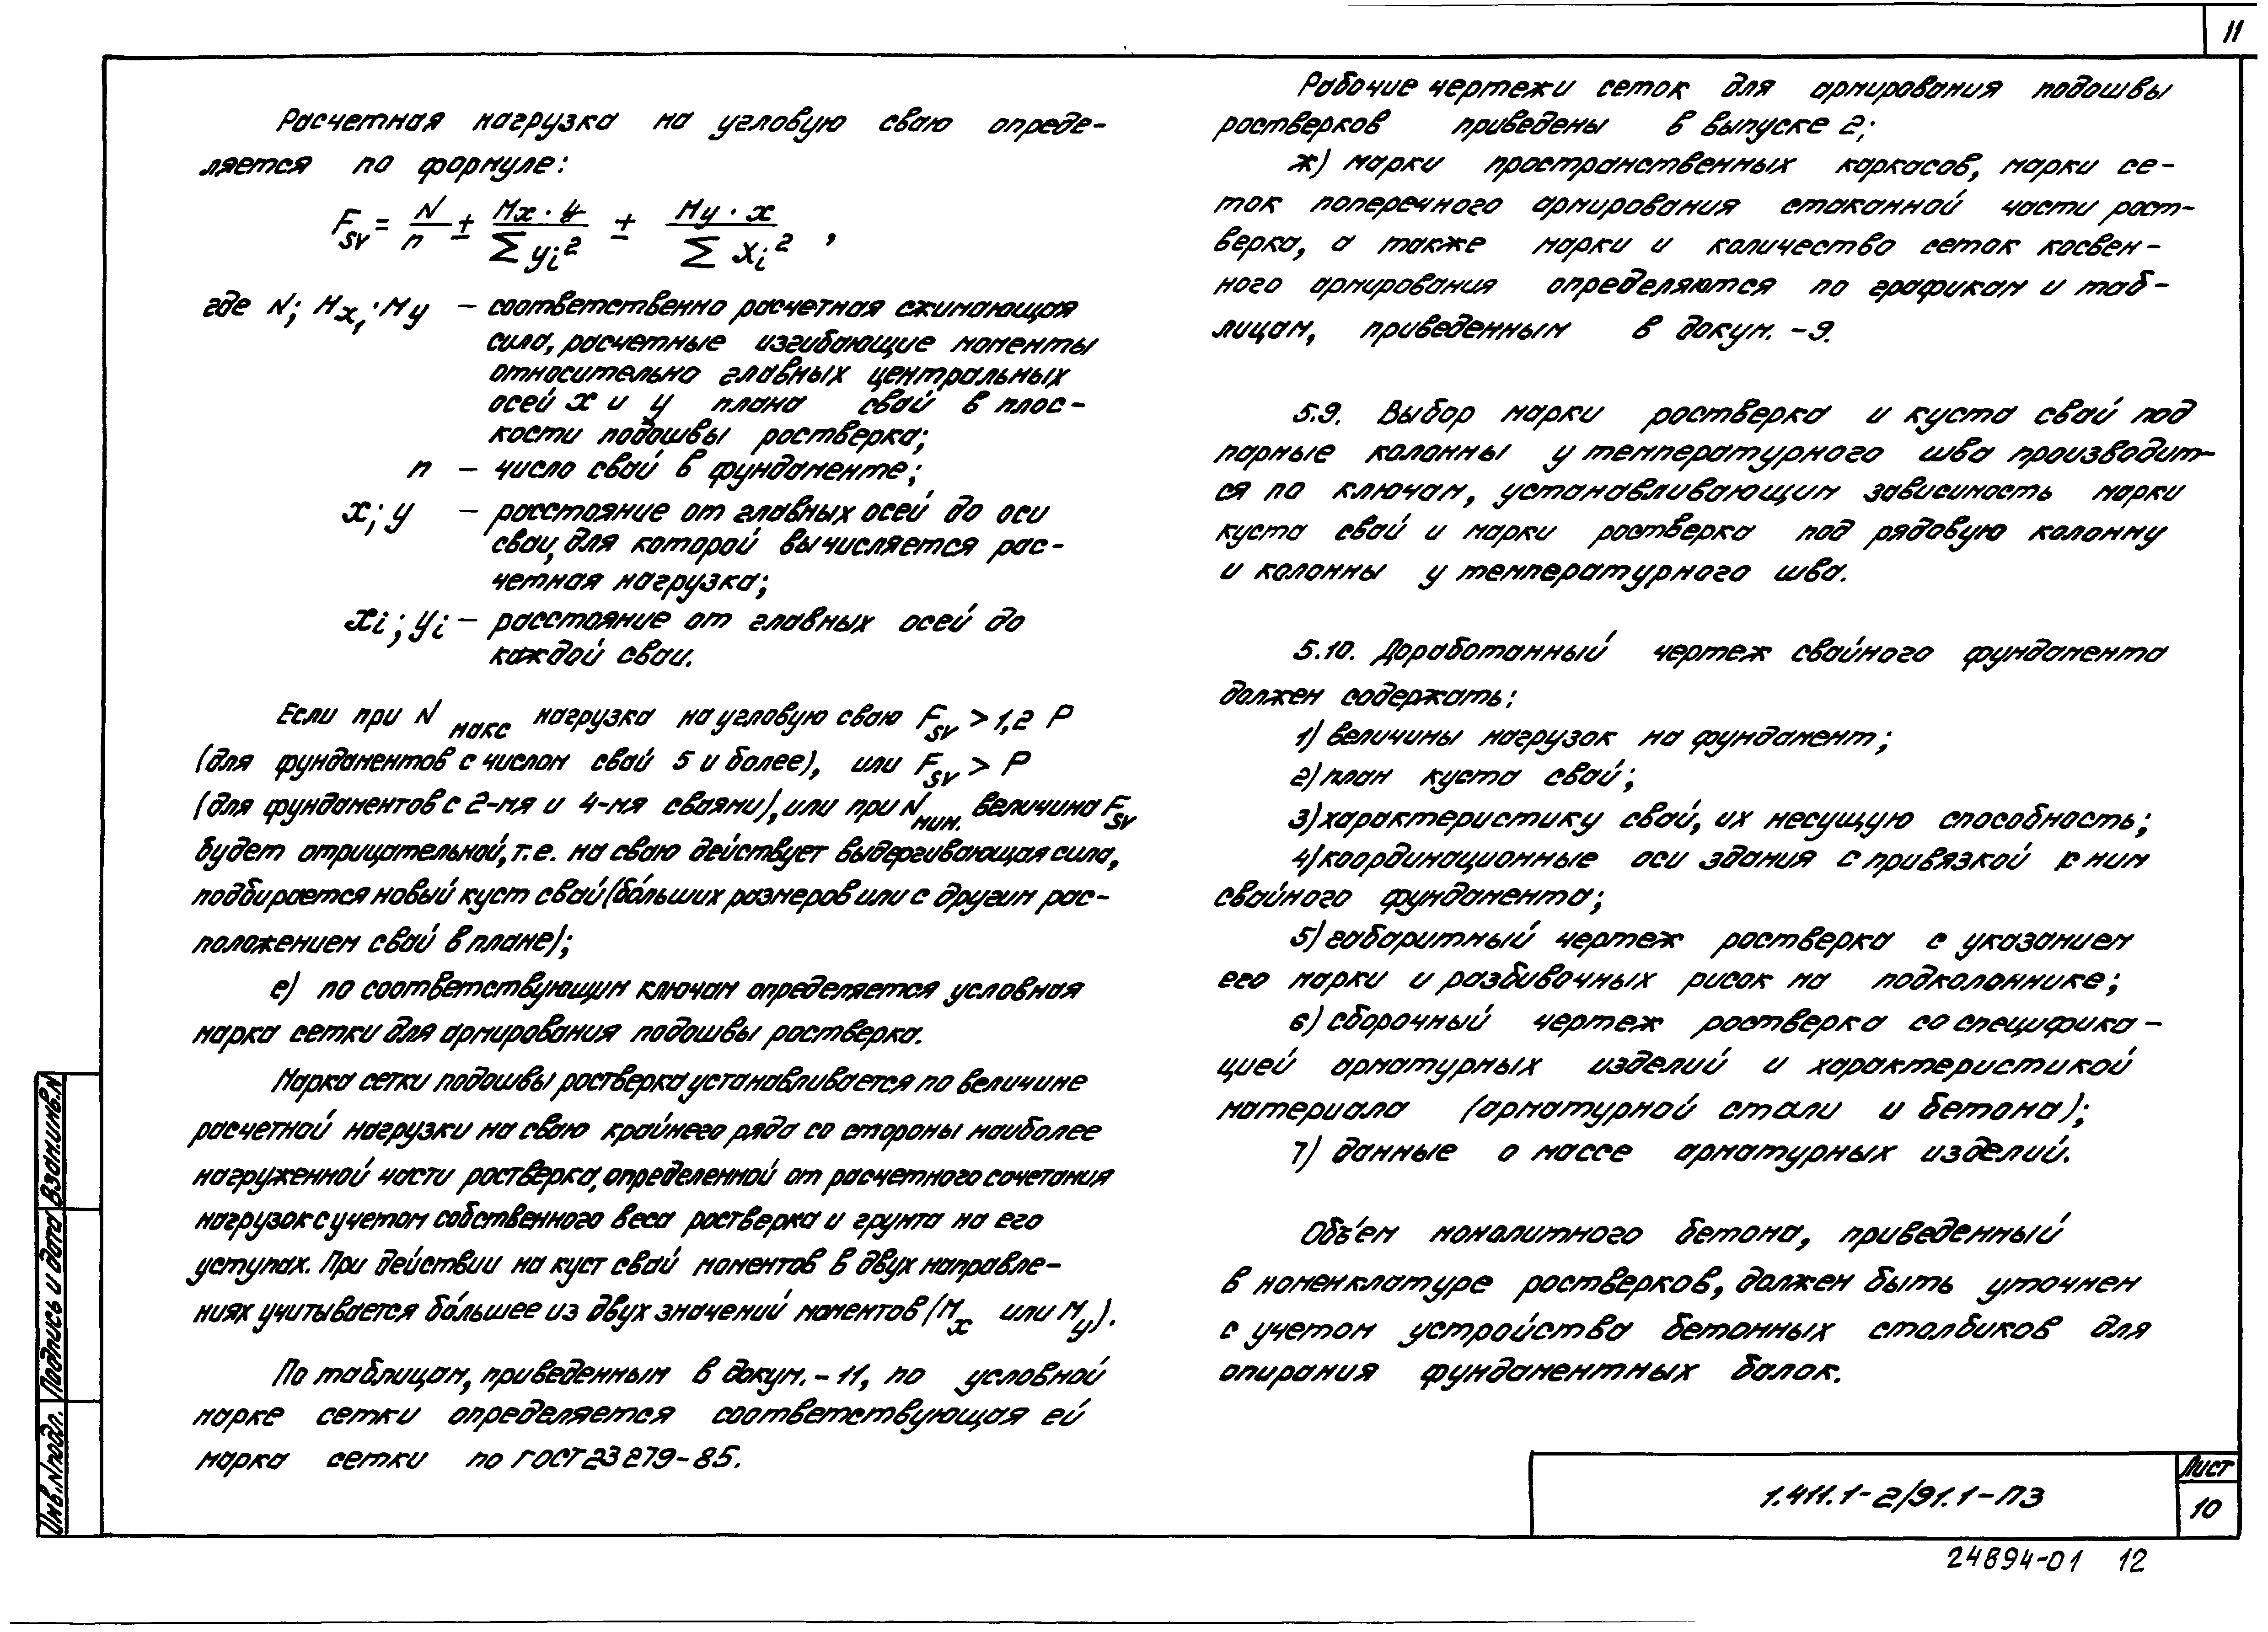 11
Расчетная нагрузка на угловую сваю опреде-
ляется по формуле:
Fsv = N/n ± Mx · y / ∑ yi² ± My · x / ∑ xi² ,
где N; Mx, My – соответственно расчетная сжимающая
сила, расчетные изгибающие моменты
относительно главных центральных
осей x и y плана свай в плос-
кости подошвы ростверка;
n – число свай в фундаменте;
x; y – расстояние от главных осей до оси
сваи, для которой вычисляется рас-
четная нагрузка;
xi; yi – расстояние от главных осей до
каждой сваи.
Если при N макс нагрузка на угловую сваю Fsv > 1,2 P
(для фундаментов с числом свай 5 и более), или Fsv > P
(для фундаментов с 2-мя и 4-мя сваями), или при Nмин. величина Fsv
будет отрицательной, т.е. на сваю действует выдергивающая сила,
подбирается новый куст свай (бо́льших размеров или с другим рас-
положением свай в плане);
е) по соответствующим ключам определяется условная
марка сетки для армирования подошвы ростверка.
Марка сетки подошвы ростверка устанавливается по величине
расчетной нагрузки на сваю крайнего ряда со стороны наиболее
нагруженной части ростверка, определенной от расчетного сочетания
нагрузок с учетом собственного веса ростверка и грунта на его
уступах. При действии на куст свай моментов в двух направле-
ниях учитывается бо́льшее из двух значений моментов (Mx или My).
По таблицам, приведенным в докум. – 11, по условной
марке сетки определяется соответствующая ей
марка сетки по ГОСТ 23279-85.
Рабочие чертежи сеток для армирования подошвы
ростверков приведены в выпуске 2;
ж) марки пространственных каркасов, марки се-
ток поперечного армирования стаканной части рост-
верка, а также марки и количество сеток косвен-
ного армирования определяются по графикам и таб-
лицам, приведенным в докум. – 9.
5.9. Выбор марки ростверка и куста свай под
парные колонны у температурного шва производит-
ся по ключам, устанавливающим зависимость марки
куста свай и марки ростверка под рядовую колонну
и колонны у температурного шва.
5.10. Доработанный чертеж свайного фундамента
должен содержать:
1) величины нагрузок на фундамент;
2) план куста свай;
3) характеристику свай, их несущую способность;
4) координационные оси здания с привязкой к ним
свайного фундамента;
5) габаритный чертеж ростверка с указанием
его марки и разбивочных рисок на подколоннике;
6) сборочный чертеж ростверка со специфика-
цией арматурных изделий и характеристикой
материала (арматурной стали и бетона);
7) данные о массе арматурных изделий.
Объем монолитного бетона, приведенный
в номенклатуре ростверков, должен быть уточнен
с учетом устройства бетонных столбиков для
опирания фундаментных балок.
Инв.N подл. Подпись и дата Взам.инв.N
1.411.1-2/91.1-ПЗ
Лист
10
24894-01 12